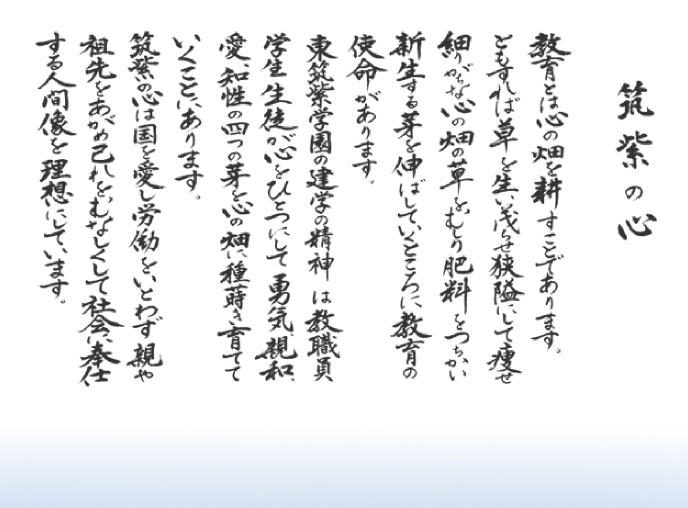 筑紫の心
教育とは心の畑を耕すことであります。
ともすれば草を生い茂らせ狭隘にして痩せ
細りがちな心の畑の草をむしり肥料をつちかい
新生する芽を伸ばしていくところに教育の
使命があります。
東筑紫学園の建学の精神は教職員
学生生徒が心をひとつにして勇気、親和、
愛、知性の四つの芽を心の畑に種蒔き育てて
いくことにあります。
筑紫の心は国を愛し労働をいとわず親や
祖先をあがめ己れをむなしくして社会に奉仕
する人間像を理想にしています。